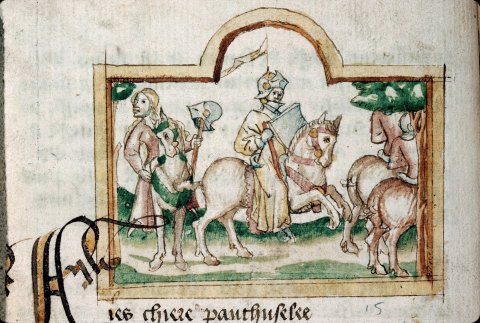 ies chiere panthuselee 15